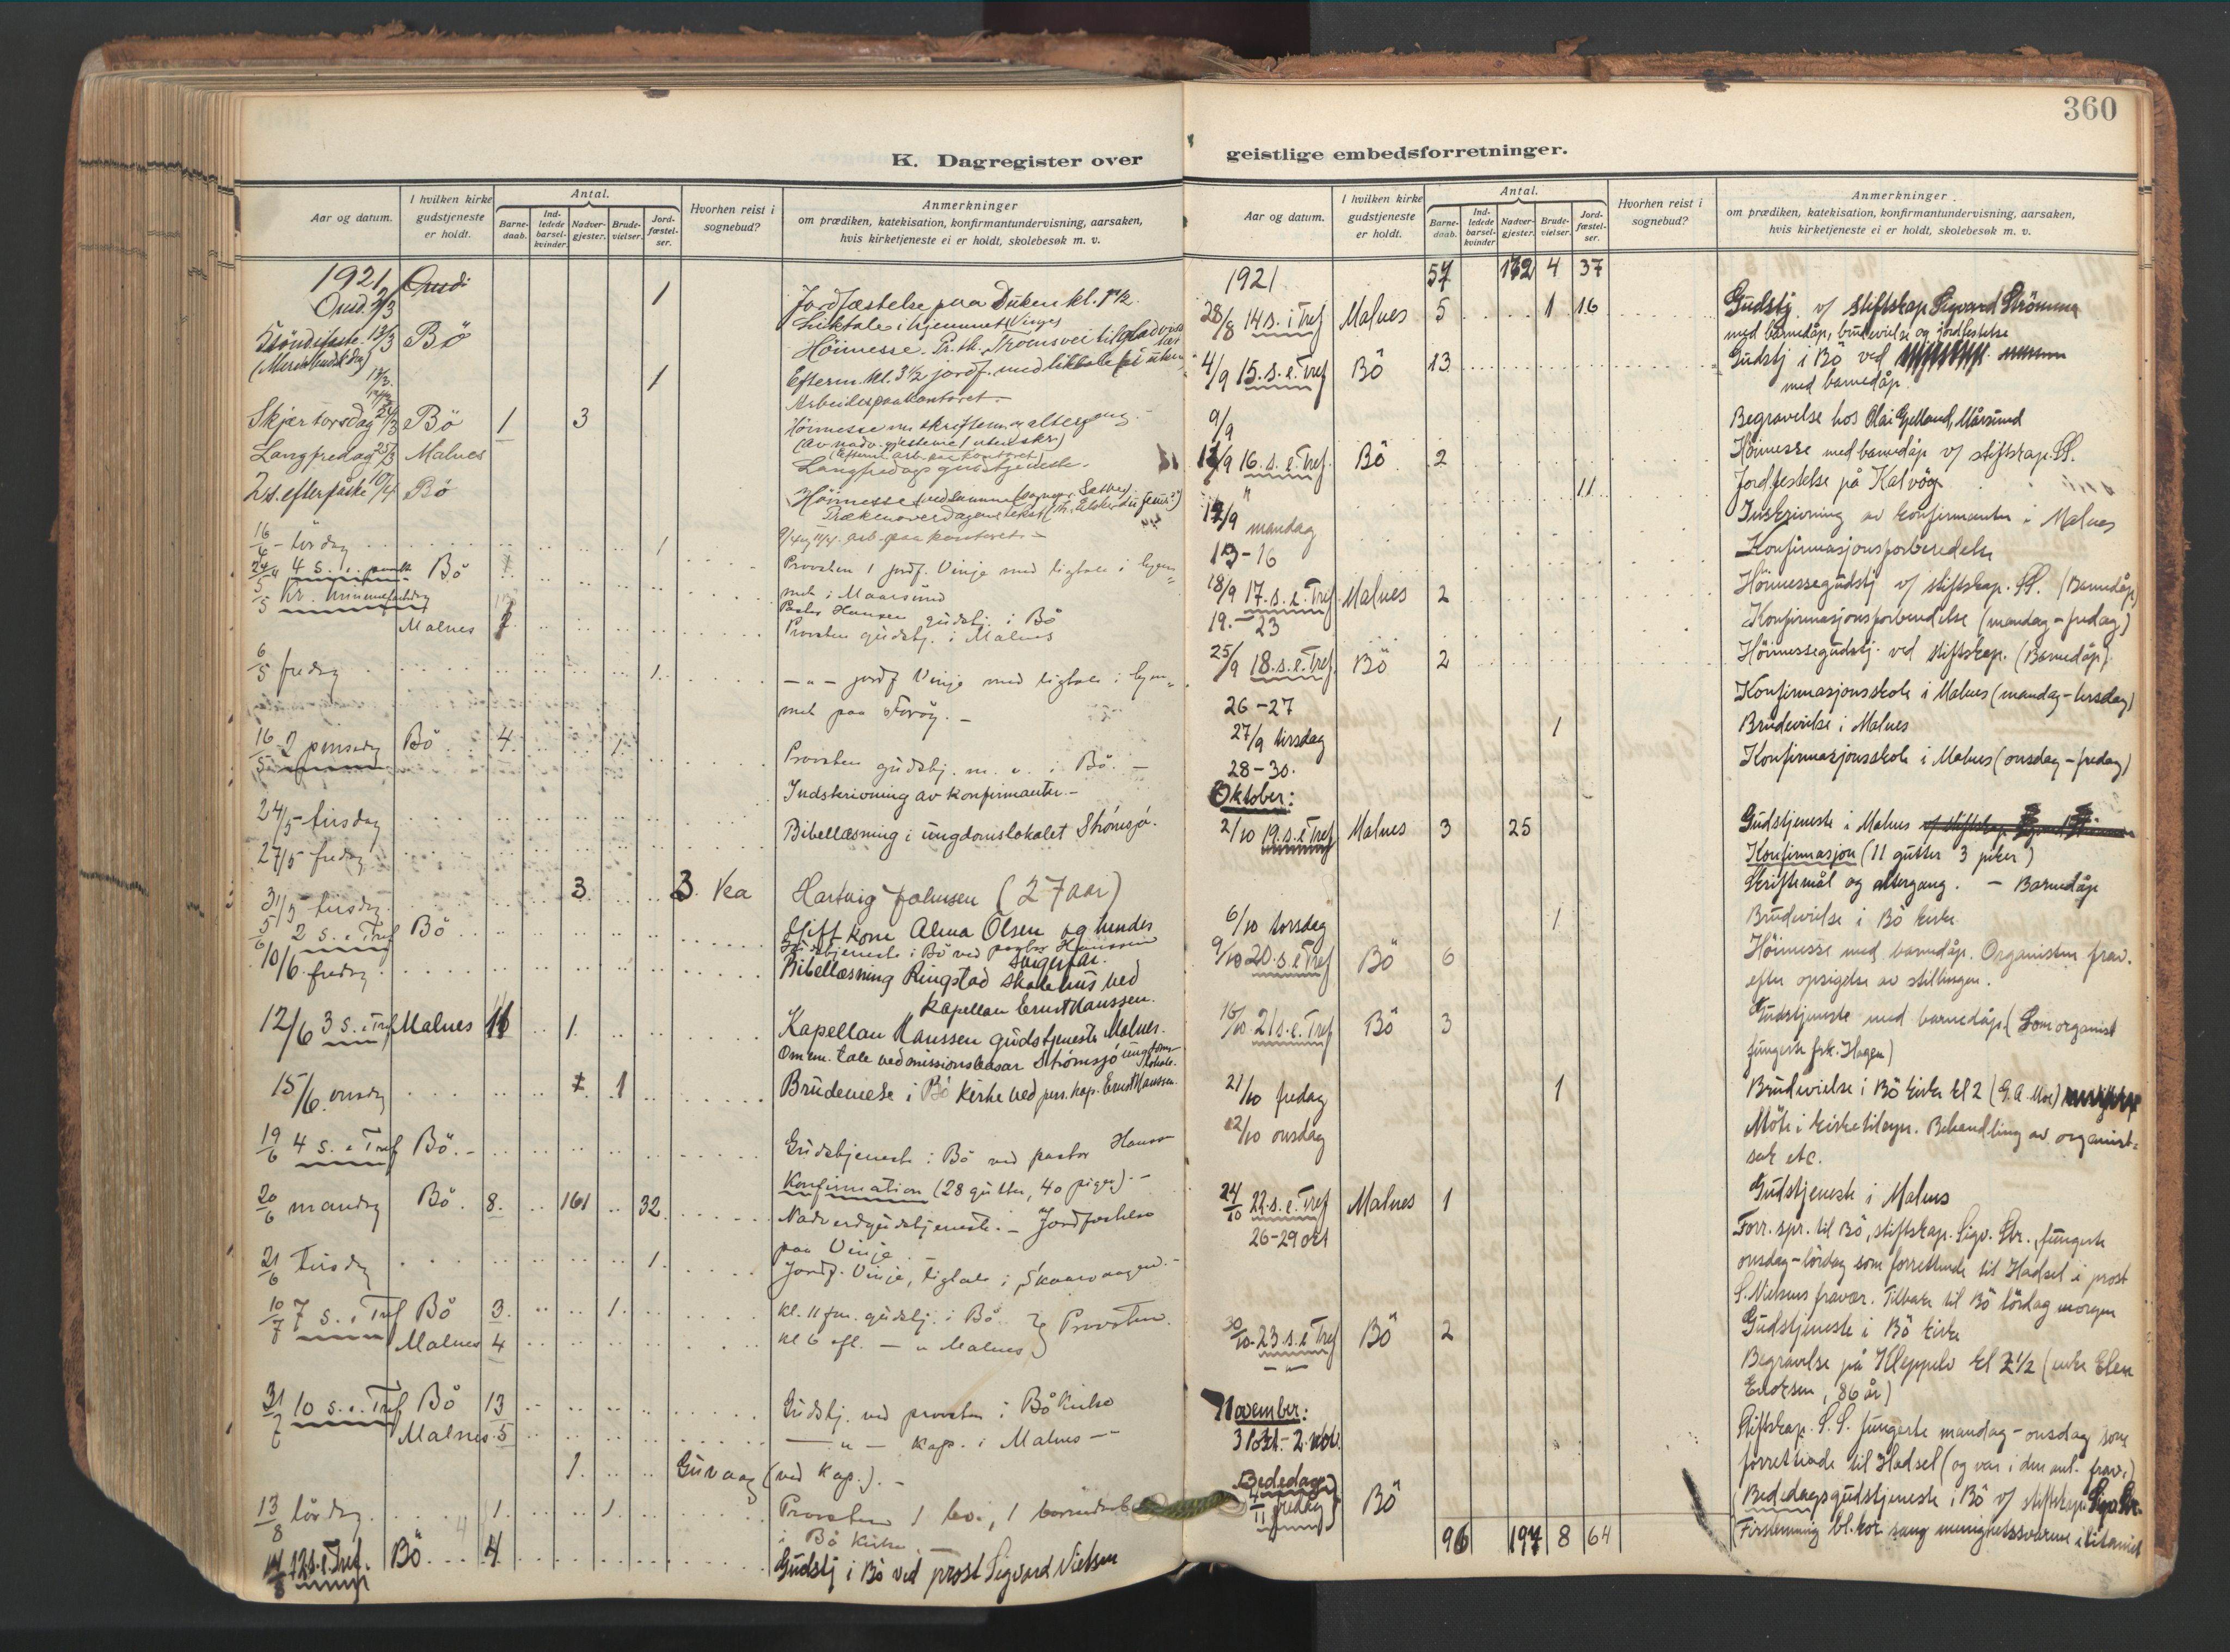 360
K. Dagregister over
Aar og datum.
I hvilken kirke gudstjeneste er holdt.
Antal.
Barne-daab.
Ind-ledede barsel-kvinder.
Nadver-gjester.
Brude-vielser.
Jord-fæstel-ser.
Hvorhen reist i sognebud?
Anmerkninger
om prædiken, katekisation, konfirmantundervisning, aarsaken,
hvis kirketjeneste ei er holdt, skolebesøk m. v.
1921
Onsd. 2/3 1 Jordfæstelse paa Duken kl. 1½.
Liktale i hjemmet
13/3 Bö Höimesse.
1 Efterm. kl. 3½ jordf. med liktale
Arbeide paa kontoret.
Skjærtorsdag 24/3 Bö 1 3 Höimesse m. skriftem. og altergang.
Langfredag 25/3 Malnes Langfredags gudstjeneste.
2. s. efter påske 10/4 Bö Höimesse
arb. paa kontoret
16/4 - lördag 1 Provsten 1 jordf. Vinje med ligtale i hjem-
met i Maarsund
24/4 4 s. Bö Pastor Hanssen gudstj. i Bö
5/5 Kr. himmelfartsdag
Malnes Provsten gudstj. i Malnes
6/5 fredag 1. — " — jordf Vinje med ligtale i hjem-
met paa
16/5 2 pinsedag Bö 4. 1. Provsten gudstj. m. v. i Bö. —
24/5 tirsdag Indskrivning av konfirmanter. -
27/5 fredag Bibellæsning i ungdomslokalet Strömsjö.
31/5 tirsdag 3. 3. Vea Hartvig Johnsen (27 aar)
Gift kone Alma Olsen og hendes
Svigerfar.
5/6 2 s. e Tref Bö Gudstjeneste i Bö ved pastor Hanssen
10/6 fredag. Bibellæsning Ringstad skolehus ved
kapellan Ernst Hanssen.
12/6 3 s. e Tref Malnes 11 1. Kapellan Hanssen gudstjeneste Malnes.
tale ved missionsbasar Strömsjö ungdoms-
lokale.
15/6. onsdag 1 Brudevielse i Bö kirke ved pers. kap. Ernst Hanssen.
19/6 4 s. e Tref Bö. - Gudstjeneste i Bö ved pastor Hanss
20/6 mandag Bö. 8. 161 32. Konfirmation (28 gutter, 40 piger). -
Nadverdgudstjeneste. - Jordfæstelse
paa Vinje
21/6 Tirsdag 1. Jordf. Vinje, ligtale i Skaarvaagen. -
10/7 7 s. e Tref Bö 3. 1. kl. 11 fm. gudstj. i Bö } Provsten.
Malnes 4 kl 6 eft. — " Malnes
31/7 10 s. e. Tref Bö 13 Gudstj. ved provsten i Bö Kirke
Malnes 5 — " — kap. i Malnes —
1. Guvaag (ved kap.). -
13/8 lördag. 1. 1. Provsten 1 bv., 1 barnedaab
i Bö Kirke.
14/8 12. s. e Tref. Bö 4 Gudstj i Bö ved prost Sigvard Nielsen
geistlige embedsforretninger.
Aar og datum.
I hvilken kirke gudstjeneste er holdt.
Antal.
Barne-daab.
Ind-ledede barsel-kvinder
Nadver-gjester.
Brude-vielser.
Jord-fæstel-ser.
Hvorhen reist i sognebud?
Anmerkninger.
om prædiken, katekisation, konfirmantundervisning, aarsaken,
hvis kirketjeneste ei er holdt, skolebesøk m. v.
1921 57 172 4 37
28/8 14 s. i Tref Malnes 5 1 16 Gudstj. v/ stiftskap Sigvard Strömme
med barnedåp, brudevielse og jordfestelse
4/9 15. s. e. Tref Bö 13 Gudstj i Bö ved
med barnedåp.
9/9 Begravelse hos Olai Gjelland, Mårsund
16. s. e. Tref. Bö 2 Höimesse med barnedåp v/ stiftskap. SS.
" 11 Jordfestelse på Kalvög
mandag Innskrivning av konfirmanter i Malnes
13-16 Konfirmasjonsforberedelse
18/9 17. s. e. Tref Malnes 2 Höimessegudstj v/ stiftskap. SS. (Barnedåp)
19. - 23 Konfirmasjonsforberedelse (mandag - fredag)
25/9 18. s. e. Tref. Bö 2 Höimessegudstj. ved stiftskap. (Barnedåp).
26-27 Konfirmasjonsskole i Malnes (mandag - tirsdag)
27/9 tirsdag 1 Brudevielse i Malnes
28-30. Konfirmasjonsskole i Malnes (onsdag - fredag)
Oktober:
2/10 19. s. e Tref Malnes 3 25 Gudstjeneste i Malnes
Konfirmasjon (11 gutter 3 piker)
Skriftemål og altergang. - Barnedåp
6/10 torsdag 1 Brudevielse i Bö kirke
9/10 20. s. e Tref Bö 6 Höimesse med barnedåp. Organisten frav.
efter opsigelse av stillingen.
16/10 21 s. e. Tref Bö 3 Gudstjeneste med barnedåp (Som organist
fungerte frk. Hagen)
21/10 fredag 1 Brudevielse i Bö kirke kl 2 (G. A. Moe)
12/10 onsdag Möte i kirketilsyn. Behandling av organist-
sak etc.
24/10 22. s. e. Tref Malnes 1 Gudstjeneste i Malnes
26-29 okt Forr. spr. til Bö, stiftskap. Sigv. Str., fungerte
onsdag - lördag som forrettende til Hadsel i prost
S. Nielsens fravær. Tilbake til Bö lördag morgen
30/10 23. s. e Tref Bö 2 Gudstjeneste i Bö kirke
— " — Begravelse på Kleppelv kl 2½ (enke Elen
Eriksen, 86 år)
November:
31 okt. - 2. nov. Stiftskap. S. S. fungerte mandag - onsdag som
forrettende til Hadsel (og var i den anl. frav.)
Bededag
4/11 fredag Bö Bededagsgudstjeneste i Bö v/ stiftskap. Sigv. Str.
96 197 8 64 Firstemmig bl. kor sang menighetssvarene i litaniet